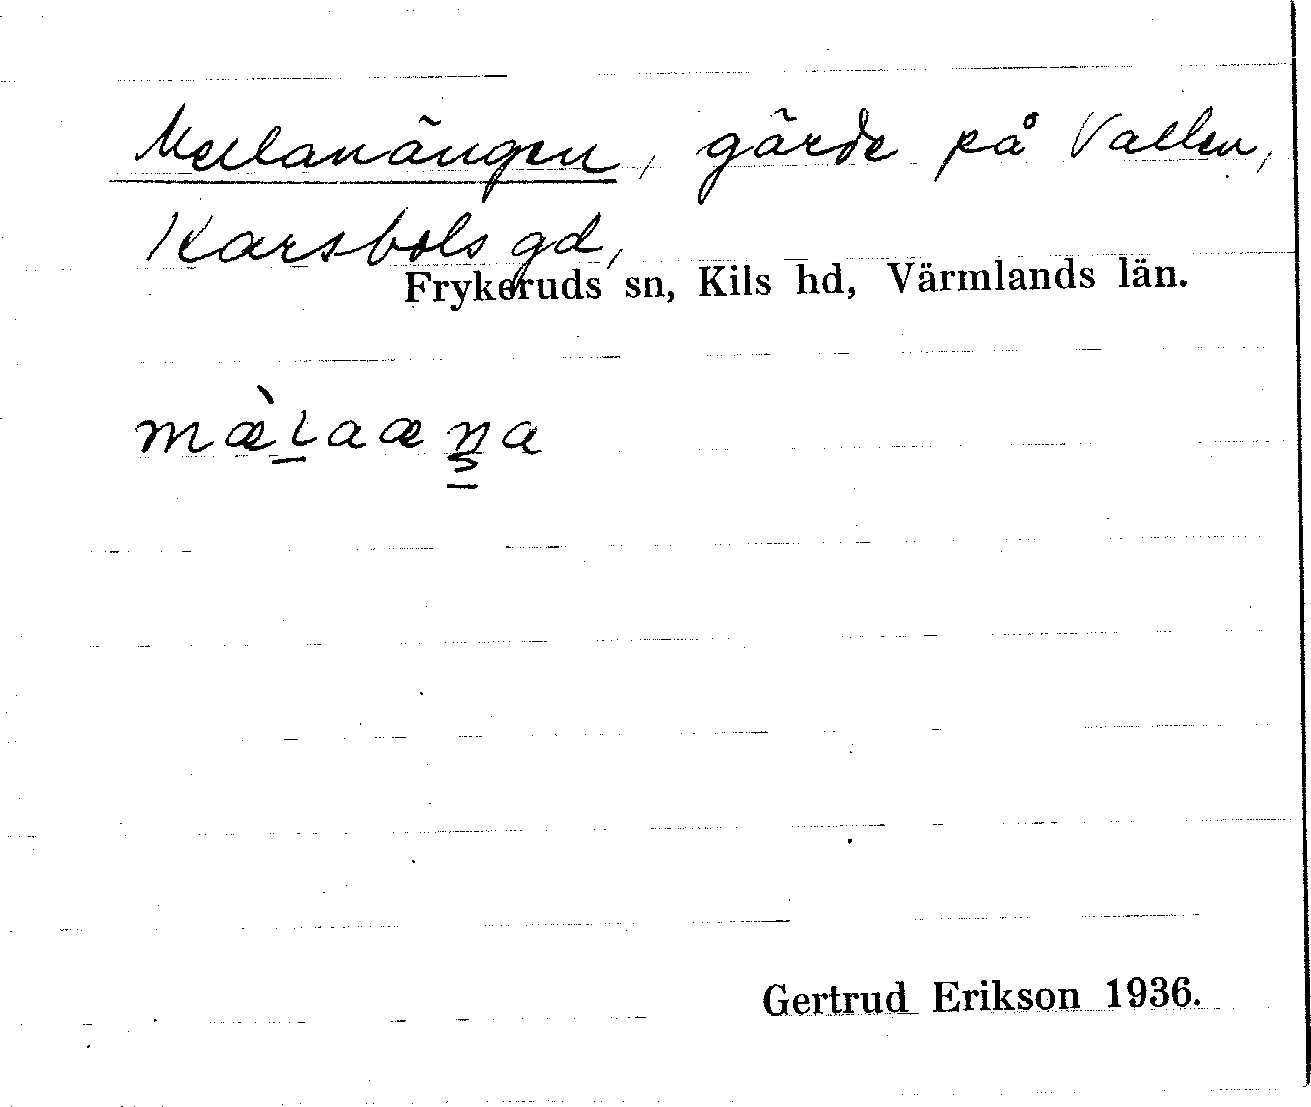 Mellanängen, gärde på Vallen,
Karsbols gd,
Frykeruds sn, Kils hd, Värmlands län.
mæ̀l̲aæŋ̲a
Gertrud Erikson 1936.